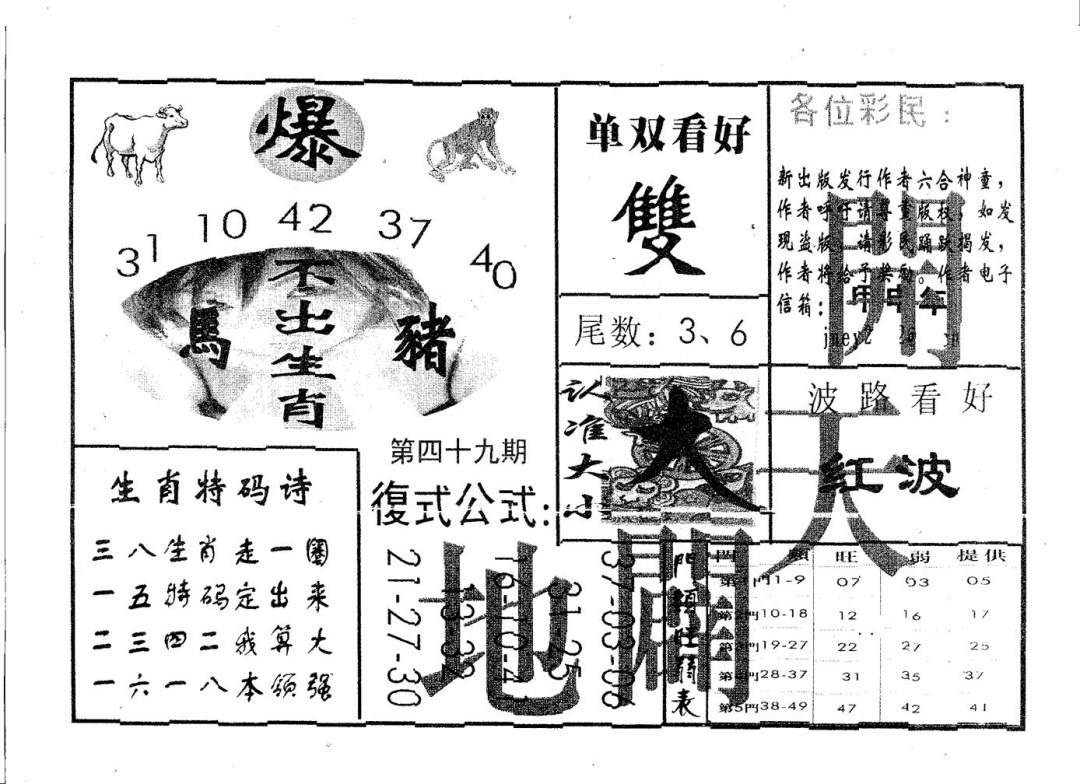 爆
31 10 42 37 40
不出生肖
馬
豬
第四十九期
復式公式:
生肖特码诗
三八生肖走一圈
一五特码定出来
二三四二我算大
一六一八本领强
21-27-30
13-32
16-10-41
31-25
37-03-06
单双看好
雙
尾数: 3、6
认准大小
大
各位彩民:
新出版发行作者六合神童,
作者呼吁请尊重版权, 如发
现盗版, 请彩民踊跃揭发,
作者将给予奖励。作者电子
信箱:
甲申年
波路看好
红波
天
地
開
門類旺弱表
門 類 旺 弱 提供
第1門1-9 07 03 05
第2門10-18 12 16 17
第3門19-27 22 27 25
第4門28-37 31 35 37
第5門38-49 47 42 41